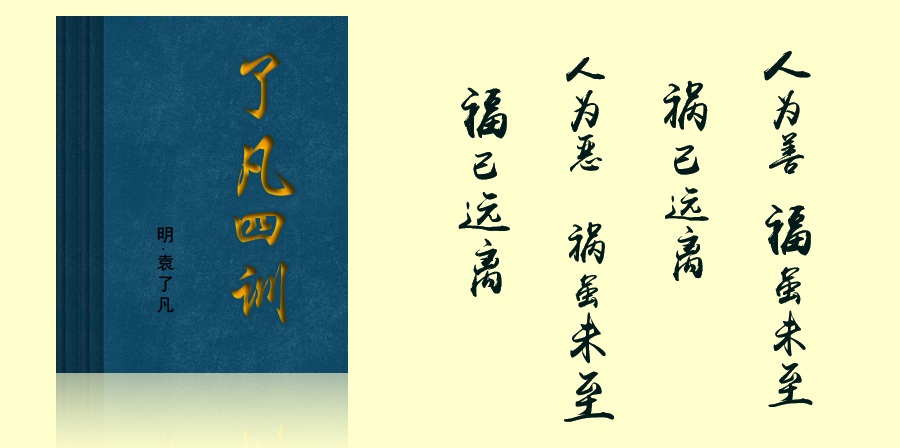 了凡四训
明·袁了凡
人为善 福虽未至
祸已远离
人为恶 祸虽未至
福已远离